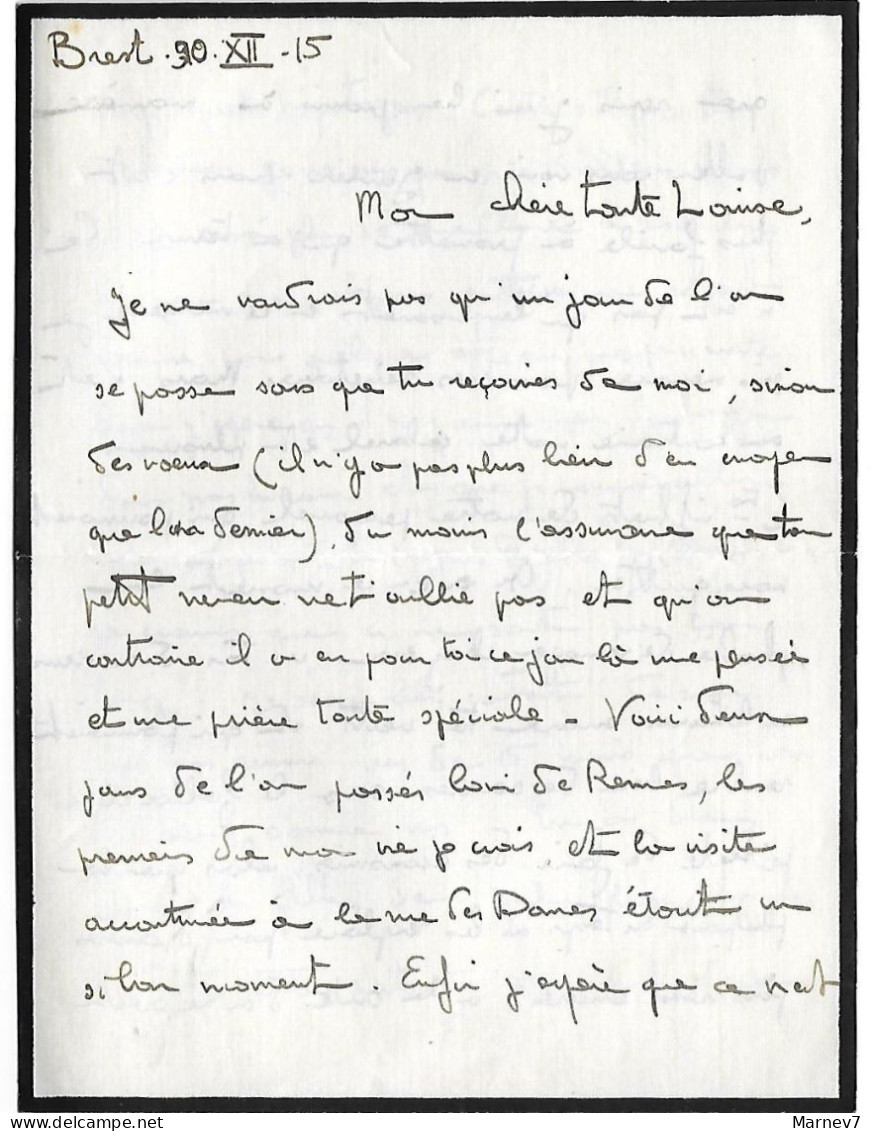 Brest . 30 . XII - 15
Ma chère tante Louise,
Je ne voudrais pas qu'un jour de l'an
se passe sans que tu reçoives de moi, sinon
des voeux (il n'y a pas plus lieu d'en envoyer
que l'an dernier), du moins l'assurance que ton
petit neveu ne t'oublie pas et qu'au
contraire il a eu pour toi ce jour là une pensée
et une prière toute spéciale - Voici deux
jours de l'an passés loin de Rennes, les
premiers de ma vie je crois, et la visite
accoutumée à la rue des Dames était un
si bon moment . Enfin j'espère que ce n'est
Marnev7